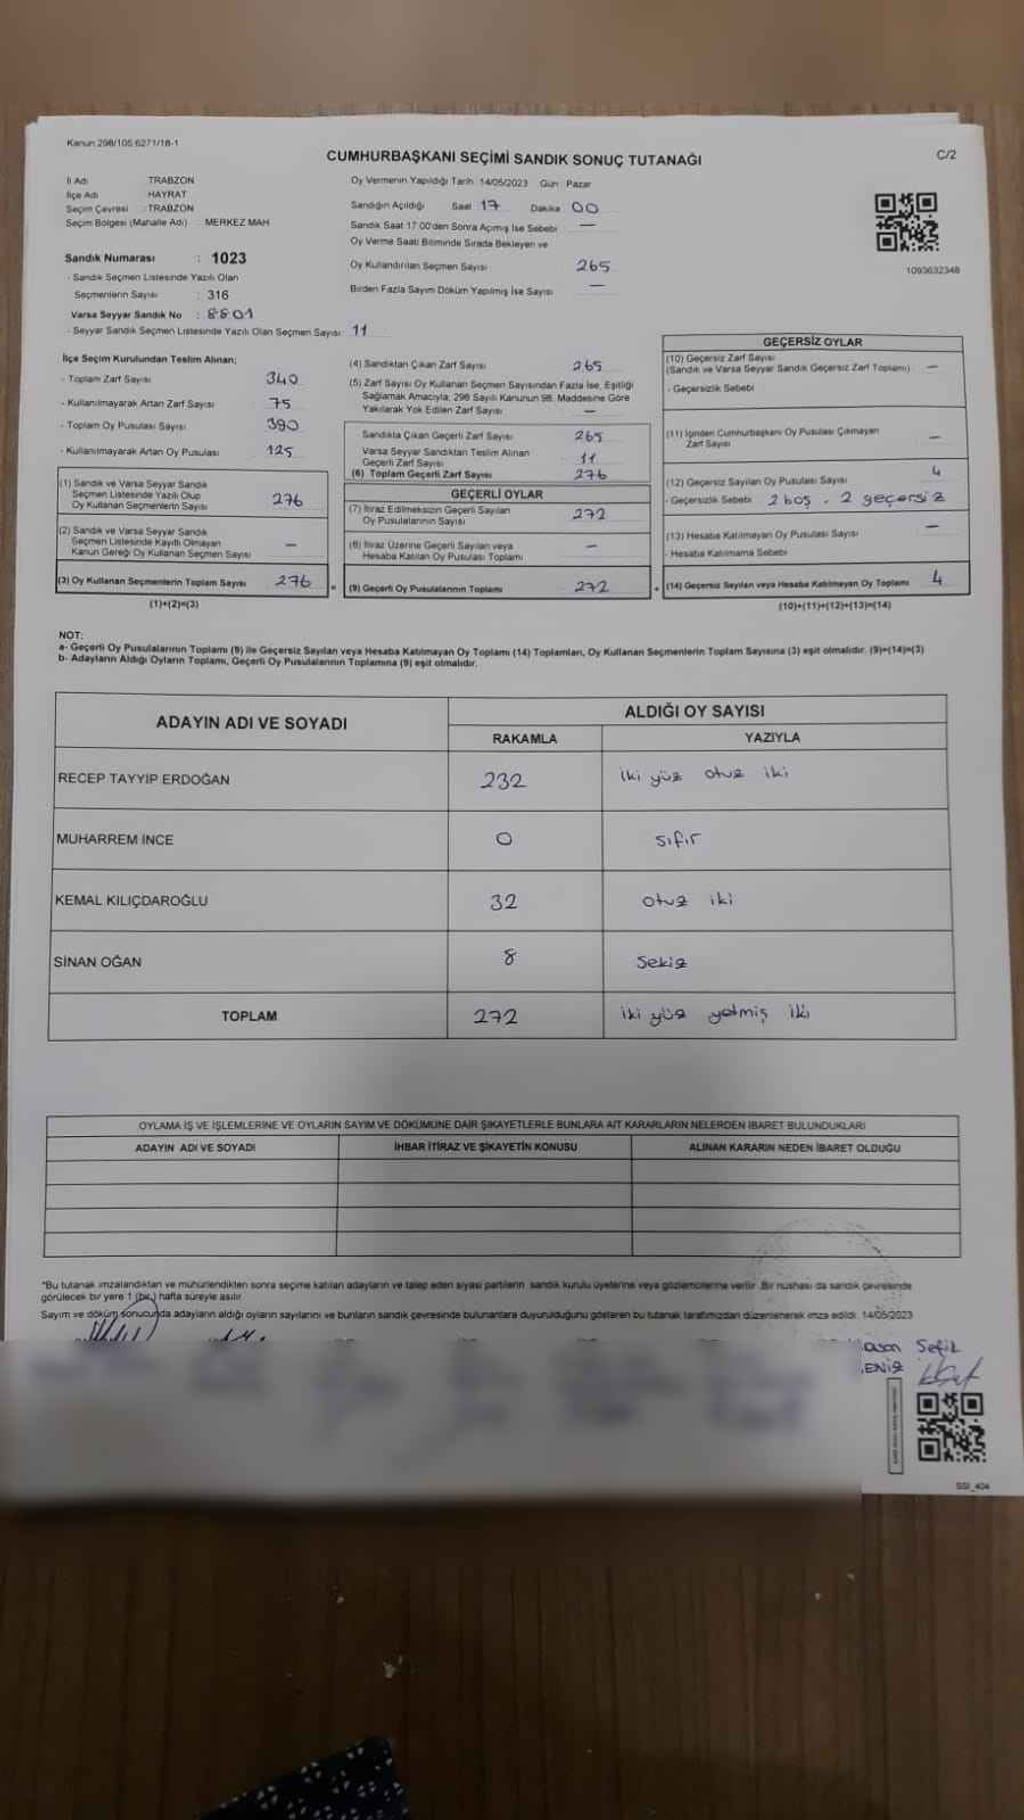 Kanun 298/105 6271/18-1
CUMHURBAŞKANI SEÇİMİ SANDIK SONUÇ TUTANAĞI
C/2
İl Adı TRABZON
İlçe Adı HAYRAT
Seçim Çevresi : TRABZON
Seçim Bölgesi (Mahalle Adı) : MERKEZ MAH
Sandık Numarası : 1023
- Sandık Seçmen Listesinde Yazılı Olan
Seçmenlerin Sayısı : 316
Varsa Seyyar Sandık No : 8801
- Seyyar Sandık Seçmen Listesinde Yazılı Olan Seçmen Sayısı: 11
Oy Vermenin Yapıldığı Tarih: 14/05/2023 Gün: Pazar
Sandığın Açıldığı Saat 17 Dakika 00
Sandık Saat 17:00'den Sonra Açımış İse Sebebi —
Oy Verme Saati Bitiminde Sırada Bekleyen ve
Oy Kullandırılan Seçmen Sayısı 265
Birden Fazla Sayım Döküm Yapılmış İse Sayısı —
1093632348
İlçe Seçim Kurulundan Teslim Alınan;
- Toplam Zarf Sayısı 340
- Kullanılmayarak Artan Zarf Sayısı 75
- Toplam Oy Pusulası Sayısı 390
- Kullanılmayarak Artan Oy Pusulası 125
(1) Sandık ve Varsa Seyyar Sandık
Seçmen Listesinde Yazılı Olup
Oy Kullanan Seçmenlerin Sayısı 276
(2) Sandık ve Varsa Seyyar Sandık
Seçmen Listesinde Kayıtlı Olmayan
Kanun Gereği Oy Kullanan Seçmen Sayısı —
(3) Oy Kullanan Seçmenlerin Toplam Sayısı 276 =
(1)+(2)=(3)
(4) Sandıktan Çıkan Zarf Sayısı 265
(5) Zarf Sayısı Oy Kullanan Seçmen Sayısından Fazla İse, Eşitliği
Sağlamak Amacıyla, 298 Sayılı Kanunun 98. Maddesine Göre
Yakılarak Yok Edilen Zarf Sayısı —
Sandıkta Çıkan Geçerli Zarf Sayısı 265
Varsa Seyyar Sandıktan Teslim Alınan
Geçerli Zarf Sayısı 11
(6) Toplam Geçerli Zarf Sayısı 276
GEÇERLİ OYLAR
(7) İtiraz Edilmeksizin Geçerli Sayılan
Oy Pusulalarının Sayısı 272
(8) İtiraz Üzerine Geçerli Sayılan veya
Hesaba Katılan Oy Pusulası Toplamı —
(9) Geçerli Oy Pusulalarının Toplamı 272 +
GEÇERSİZ OYLAR
(10) Geçersiz Zarf Sayısı
(Sandık ve Varsa Seyyar Sandık Geçersiz Zarf Toplamı) —
- Geçersizlik Sebebi
(11) İçinden Cumhurbaşkanı Oy Pusulası Çıkmayan
Zarf Sayısı —
(12) Geçersiz Sayılan Oy Pusulası Sayısı 4
- Geçersizlik Sebebi 2 boş - 2 geçersiz
(13) Hesaba Katılmayan Oy Pusulası Sayısı —
- Hesaba Katılmama Sebebi
(14) Geçersiz Sayılan veya Hesaba Katılmayan Oy Toplamı 4
(10)+(11)+(12)+(13)=(14)
NOT:
a- Geçerli Oy Pusulalarının Toplamı (9) ile Geçersiz Sayılan veya Hesaba Katılmayan Oy Toplamı (14) Toplamları, Oy Kullanan Seçmenlerin Toplam Sayısına (3) eşit olmalıdır. (9)+(14)=(3)
b- Adayların Aldığı Oyların Toplamı, Geçerli Oy Pusulalarının Toplamına (9) eşit olmalıdır.
ADAYIN ADI VE SOYADI
ALDIĞI OY SAYISI
RAKAMLA YAZIYLA
RECEP TAYYİP ERDOĞAN 232 iki yüz otuz iki
MUHARREM İNCE 0 sıfır
KEMAL KILIÇDAROĞLU 32 otuz iki
SİNAN OĞAN 8 sekiz
TOPLAM 272 iki yüz yetmiş iki
OYLAMA İŞ VE İŞLEMLERİNE VE OYLARIN SAYIM VE DÖKÜMÜNE DAİR ŞİKAYETLERLE BUNLARA AİT KARARLARIN NELERDEN İBARET BULUNDUKLARI
ADAYIN ADI VE SOYADI İHBAR İTİRAZ VE ŞİKAYETİN KONUSU ALINAN KARARIN NEDEN İBARET OLDUĞU
*Bu tutanak imzalandıktan ve mühürlendikten sonra seçime katılan adayların ve talep eden siyasi partilerin sandık kurulu üyelerine veya gözlemcilerine verilir. Bir nüshası da sandık çevresinde
görülecek bir yere 1 (bir) hafta süreyle asılır.
Sayım ve döküm sonucunda adayların aldığı oyların sayılarını ve bunların sandık çevresinde bulunanlara duyurulduğunu gösteren bu tutanak tarafımızdan düzenlenerek imza edildi. 14/05/2023
Sefik
SSI_404